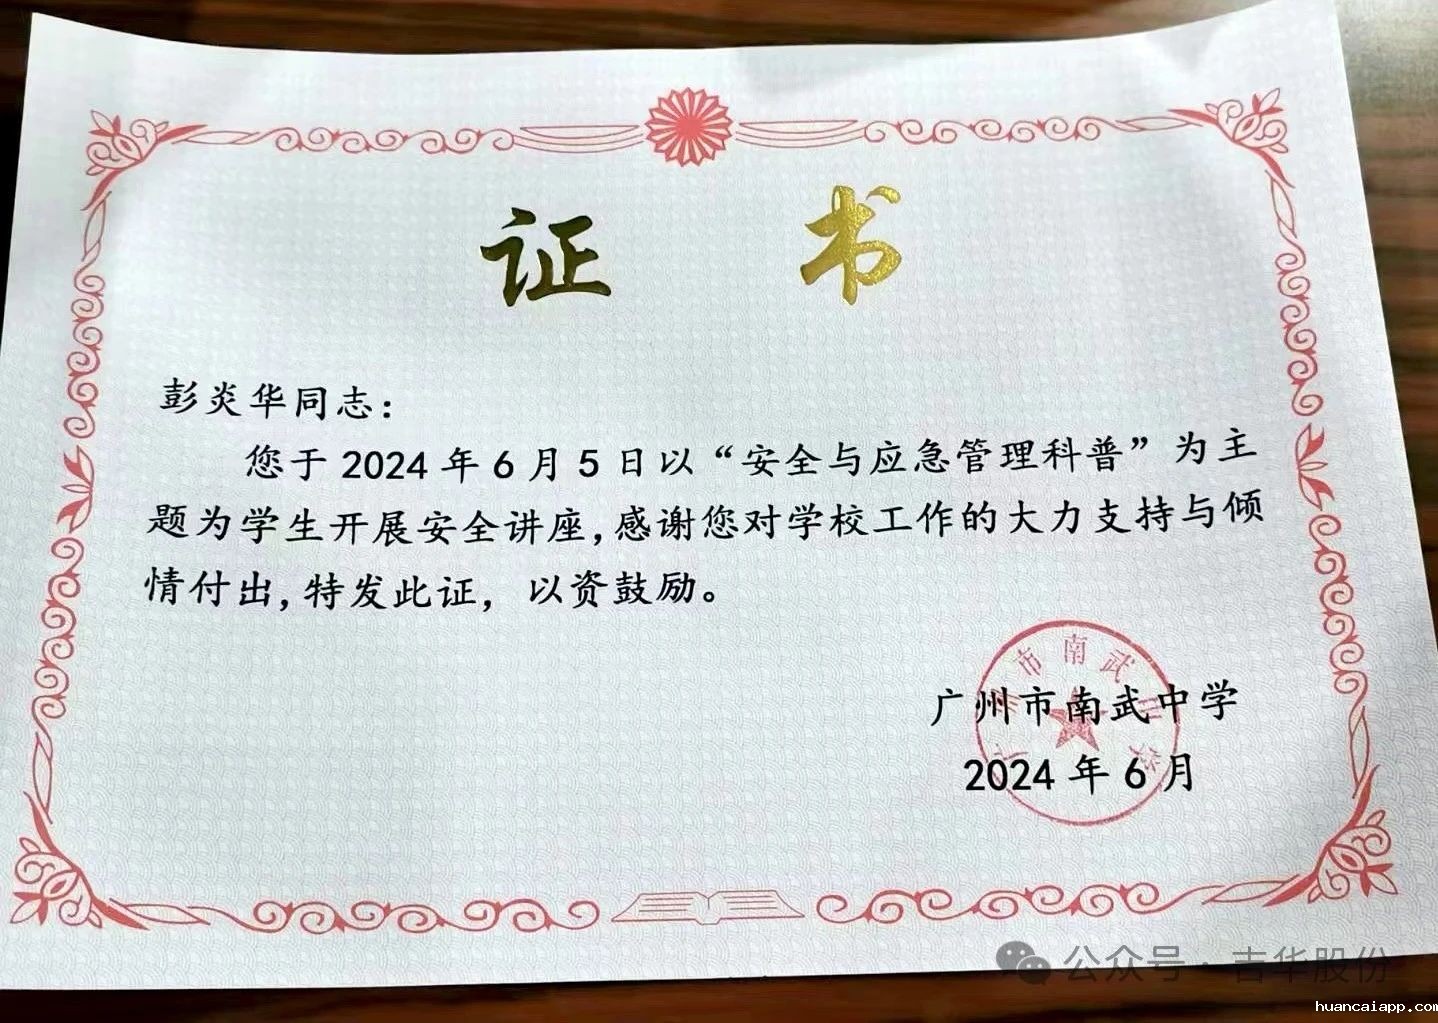 证书
彭炎华同志：
您于2024年6月5日以“安全与应急管理科普”为主
题为学生开展安全讲座,感谢您对学校工作的大力支持与倾
情付出,特发此证，以资鼓励。
市南武
广州市南武中学
2024年6月
公众号·吉华股份
huancaiapp.com